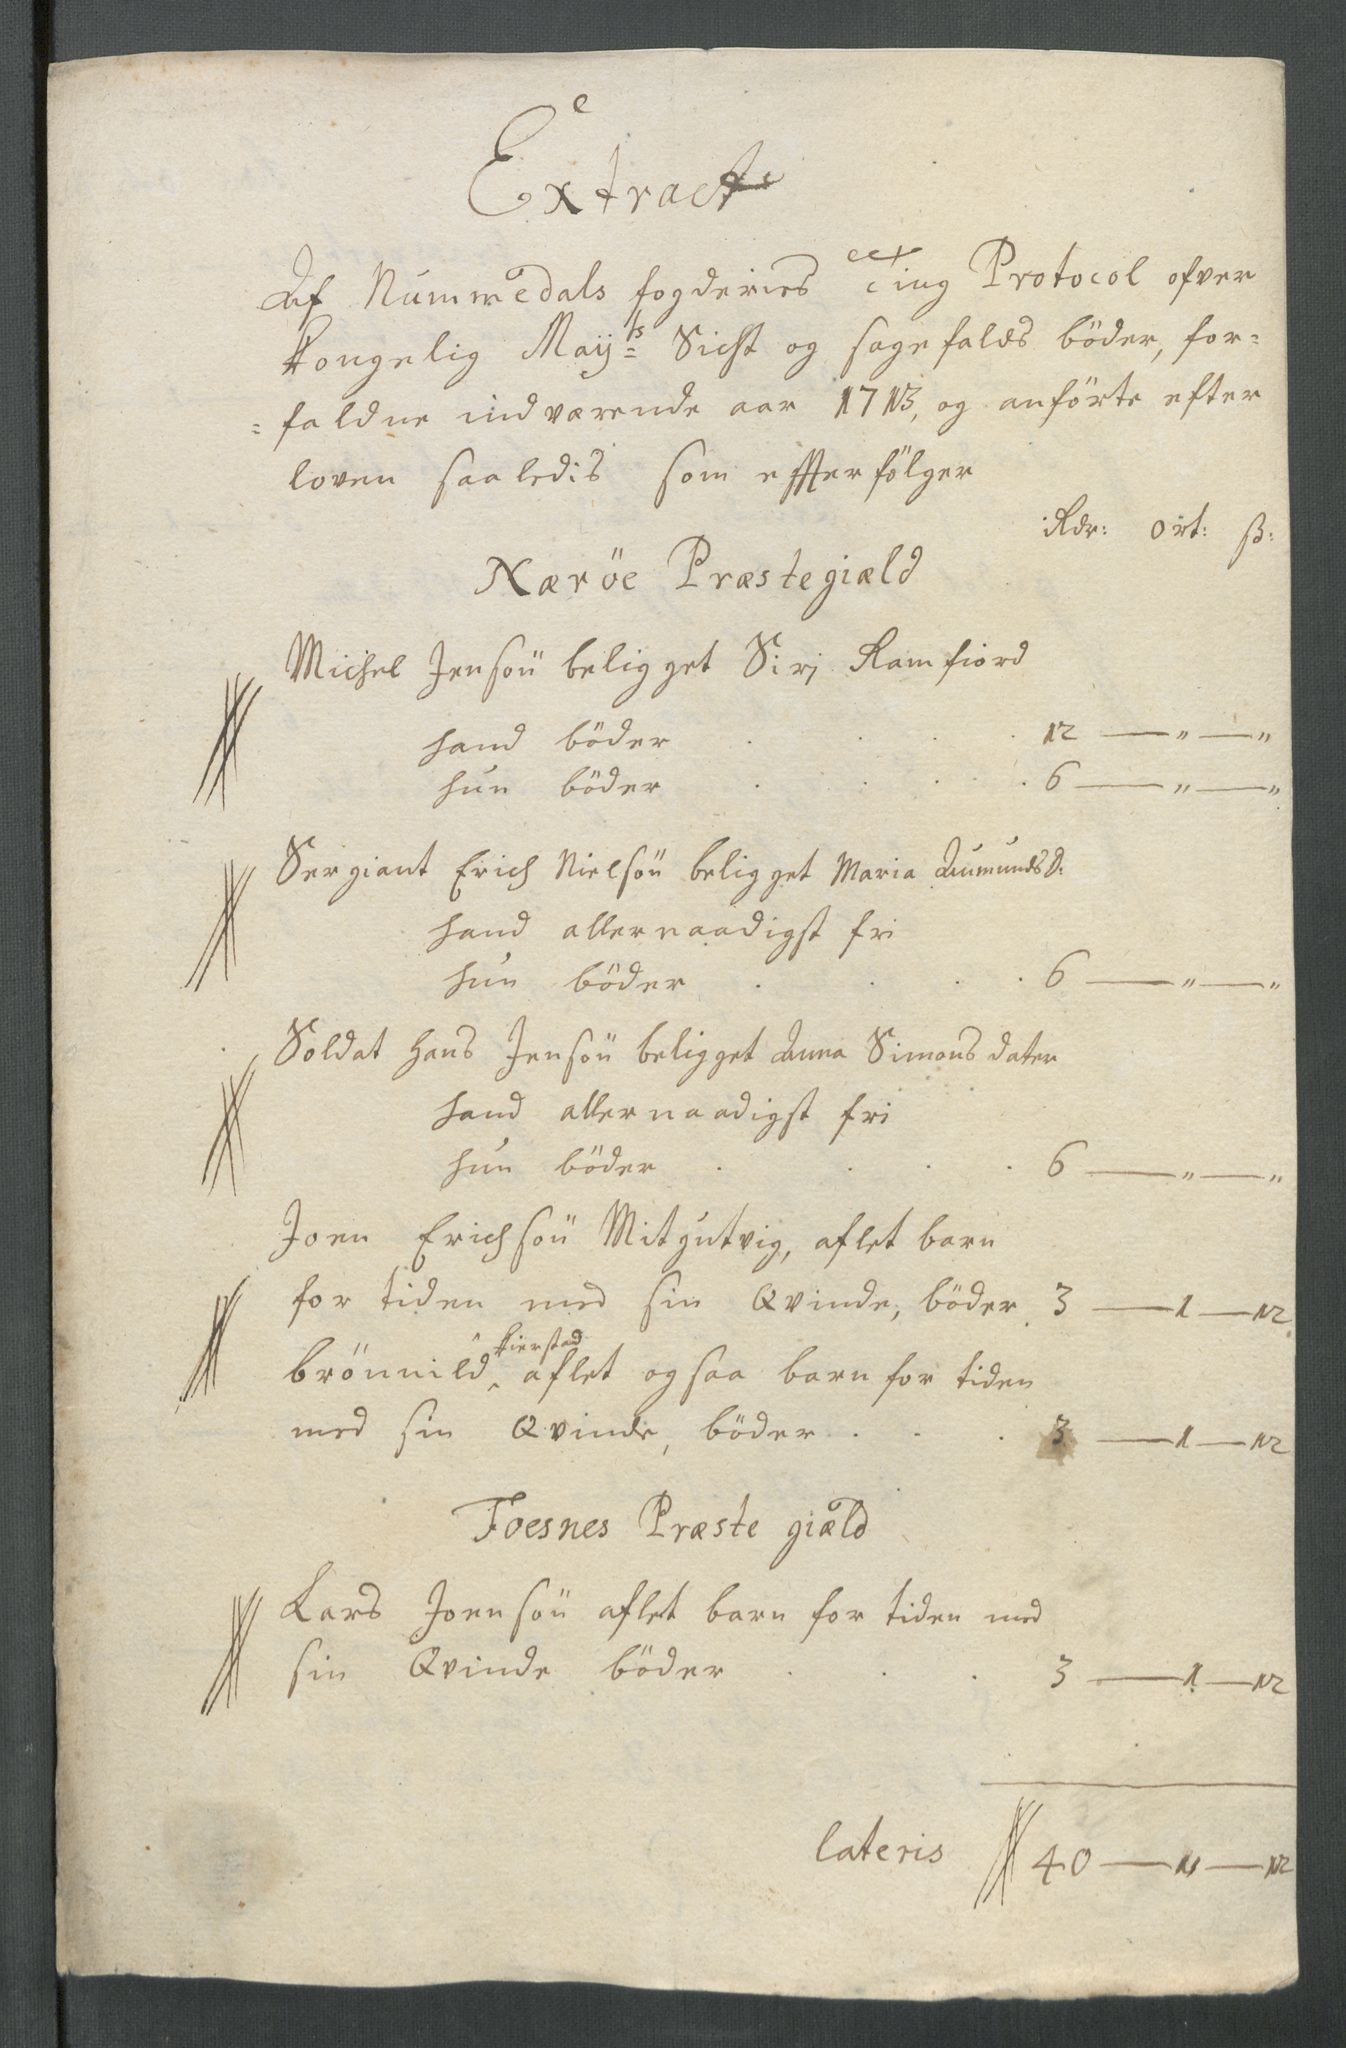 Extract
Af Nummedals fogderies Ting Protocol ofver
Kongelig Maÿ:ts Sicht og sagefalds böder, for=
=faldne indværende aar 1713, og anförte efter
loven saaledis som effterfölger
Rdr: ort: ß:
Næröe Præstegiæld
Michel Jensön beligget Sirj Ramfiord
hand böder . . . . 12 — " — "
hun böder . . . . 6 — " — "
Sergiant Erich Nielsön beligget Maria Aumunds D:
hand allernaadigst fri
hun böder . . . . 6 — " — "
Soldat Hans Jensön beligget Anna Simonsdater
hand allernaadigst fri
hun böder . . . . 6 — " — "
Joen Erichsön Mitgutvig, aflet barn
for tiden med sin Qvinde, böder 3 — 1 — 12
kierstad
brönnild, aflet ogsaa barn for tiden
med sin Qvinde, böder . . . 3 — 1 — 12
Foesnes Præste giæld
Lars Joensön aflet barn for tiden med
sin Qvinde böder . . . 3 — 1 — 12
lateris 40 — " — 12